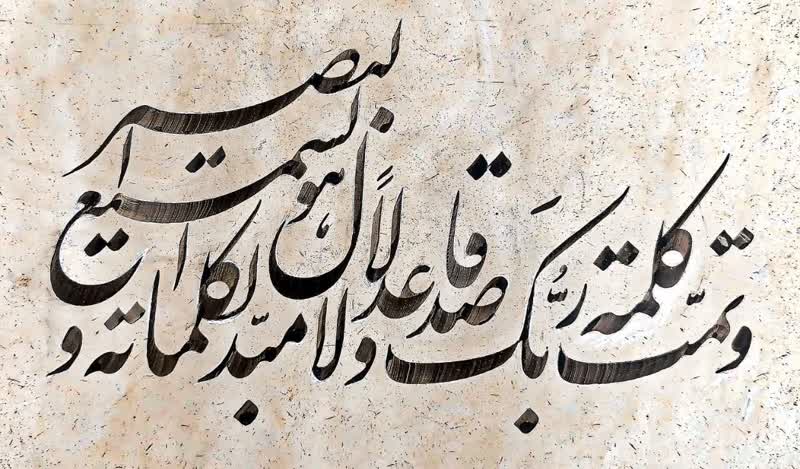 و تمّت كلمة ربُّک صدقا و عدلاً لا مبدّل لکلماته و هو السمیع البصیر